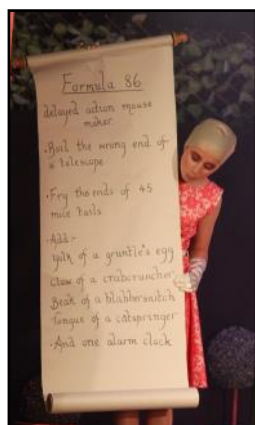 Formula 86
delayed action mouse
maker
• Boil the wrong end of
a telescope
• Fry the ends of 45
mice tails
• Add:-
Yolk of a gruntle's egg
Claw of a crabcruncher
Beak of a blabbersnitch
Tongue of a catspringer
• And one alarm clock